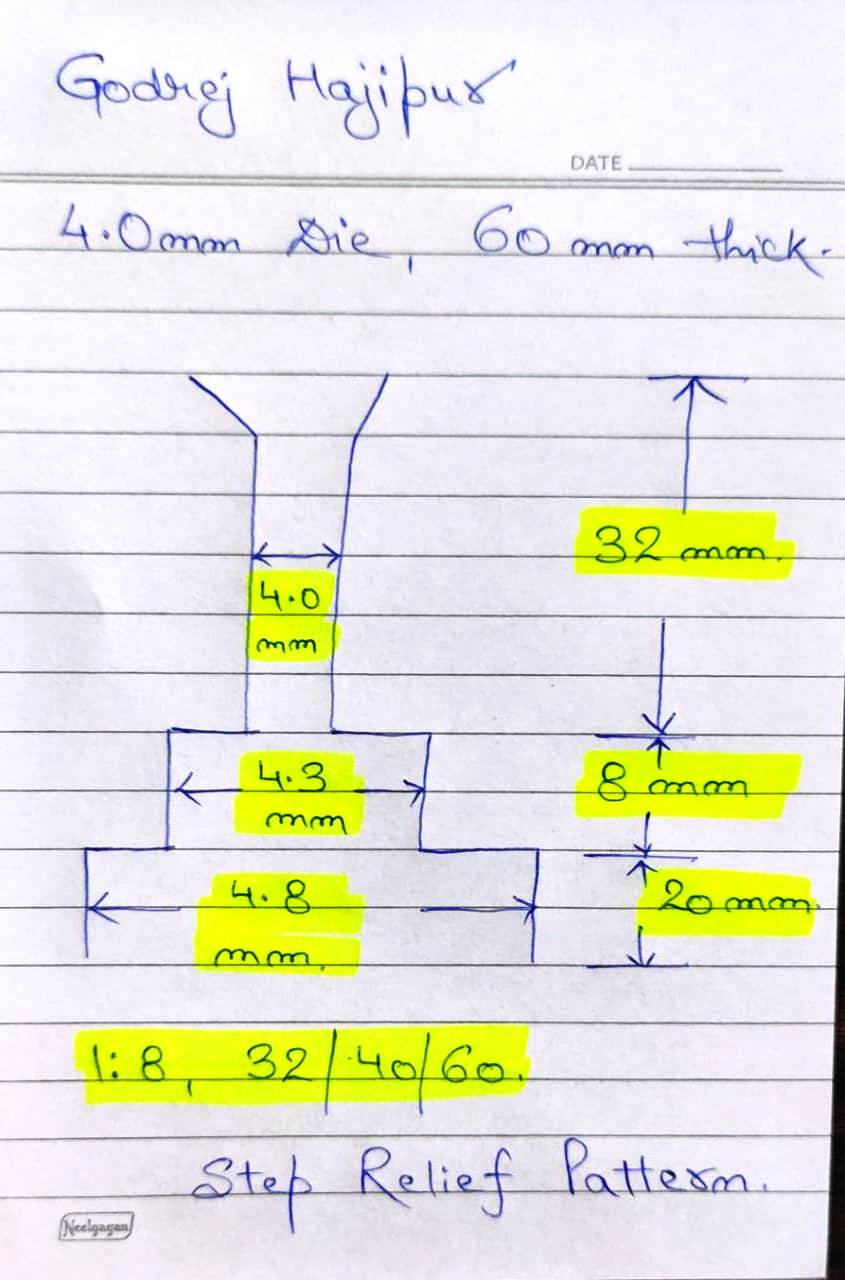 Godrej Hajipur
DATE
4.0mm Die, 60 mm thick.
32 mm.
4.0
mm
4.3
mm
8 mm
4.8
mm.
20 mm
1:8, 32/40/60.
Step Relief Pattern.
Neelgagan